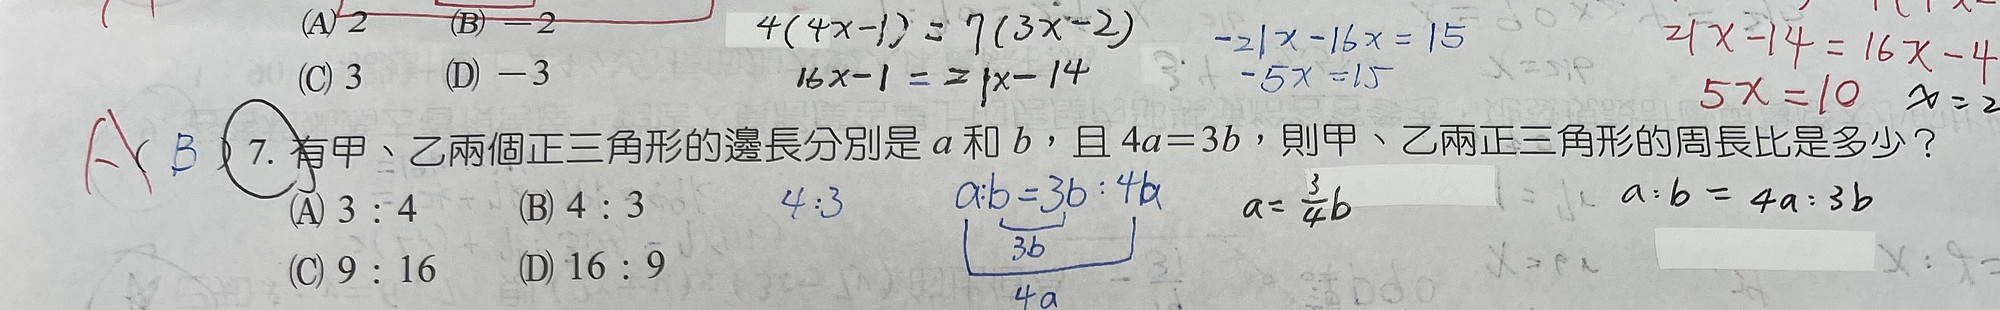 (A) 2 (B) －2 4(4x-1) = 7(3x-2) -21x-16x=15 21x-14=16x-4
(C) 3 (D) －3 16x-1 = 21x-14 -5x=15 5x=10 x=2
A ( B ) 7. 有甲、乙兩個正三角形的邊長分別是 a 和 b，且 4a＝3b，則甲、乙兩正三角形的周長比是多少？
(A) 3：4 (B) 4：3 4:3 a:b=3b:4a a=3/4b a:b = 4a:3b
3b
(C) 9：16 (D) 16：9
4a